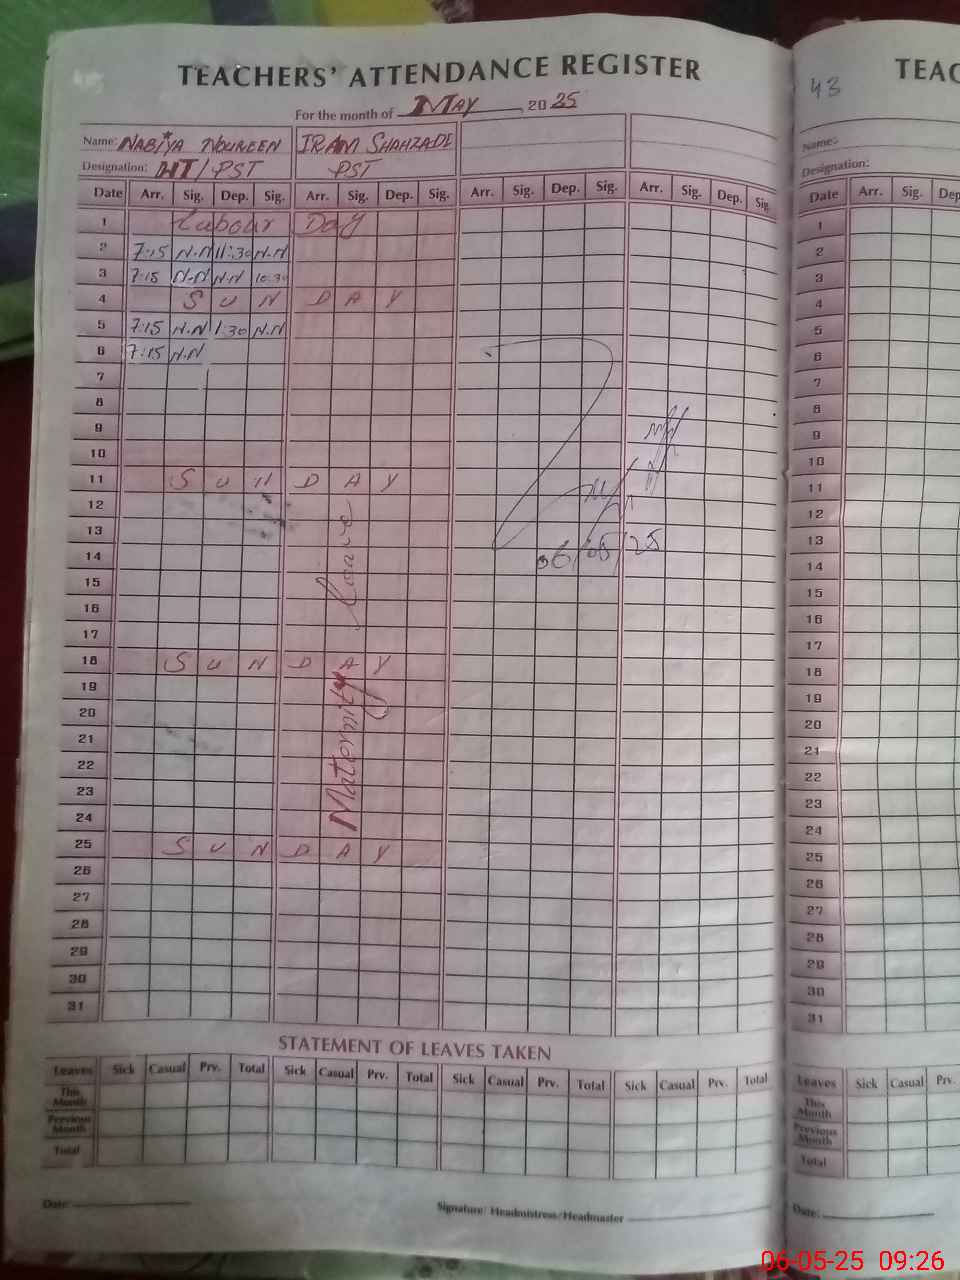 TEACHERS' ATTENDANCE REGISTER
For the month of MAY, 2025
Name: NABIYA NOUREEN IRAM SHAHZADI
Designation: HT/PST PST
Date Arr. Sig. Dep. Sig. Arr. Sig. Dep. Sig. Arr. Sig. Dep. Sig. Arr. Sig. Dep. Sig.
1 Labour Day
2 7:15 N.N 11:30 N.N
3 7:15 N.N N.N 10:30
4 S U N D A Y
5 7:15 N.N 1:30 N.N
6 7:15 N.N
7
8
9
10
11 S U N D A Y
12
13
14
15
16
17
18 S U N D A Y
19
20
21
22
23
24
25 S U N D A Y
26
27
28
29
30
31
Maternity leave
06/05/25
STATEMENT OF LEAVES TAKEN
Leaves Sick Casual Prv. Total Sick Casual Prv. Total Sick Casual Prv. Total Sick Casual Prv. Total
This Month
Previous Month
Total
Date:
Signature/ Headmistress/Headmaster
43
TEAC
Name:
Designation:
Date Arr. Sig. Dep
1
2
3
4
5
6
7
8
9
10
11
12
13
14
15
16
17
18
19
20
21
22
23
24
25
26
27
28
29
30
31
Leaves Sick Casual Prv.
This Month
Previous Month
Total
Date:
06-05-25 09:26